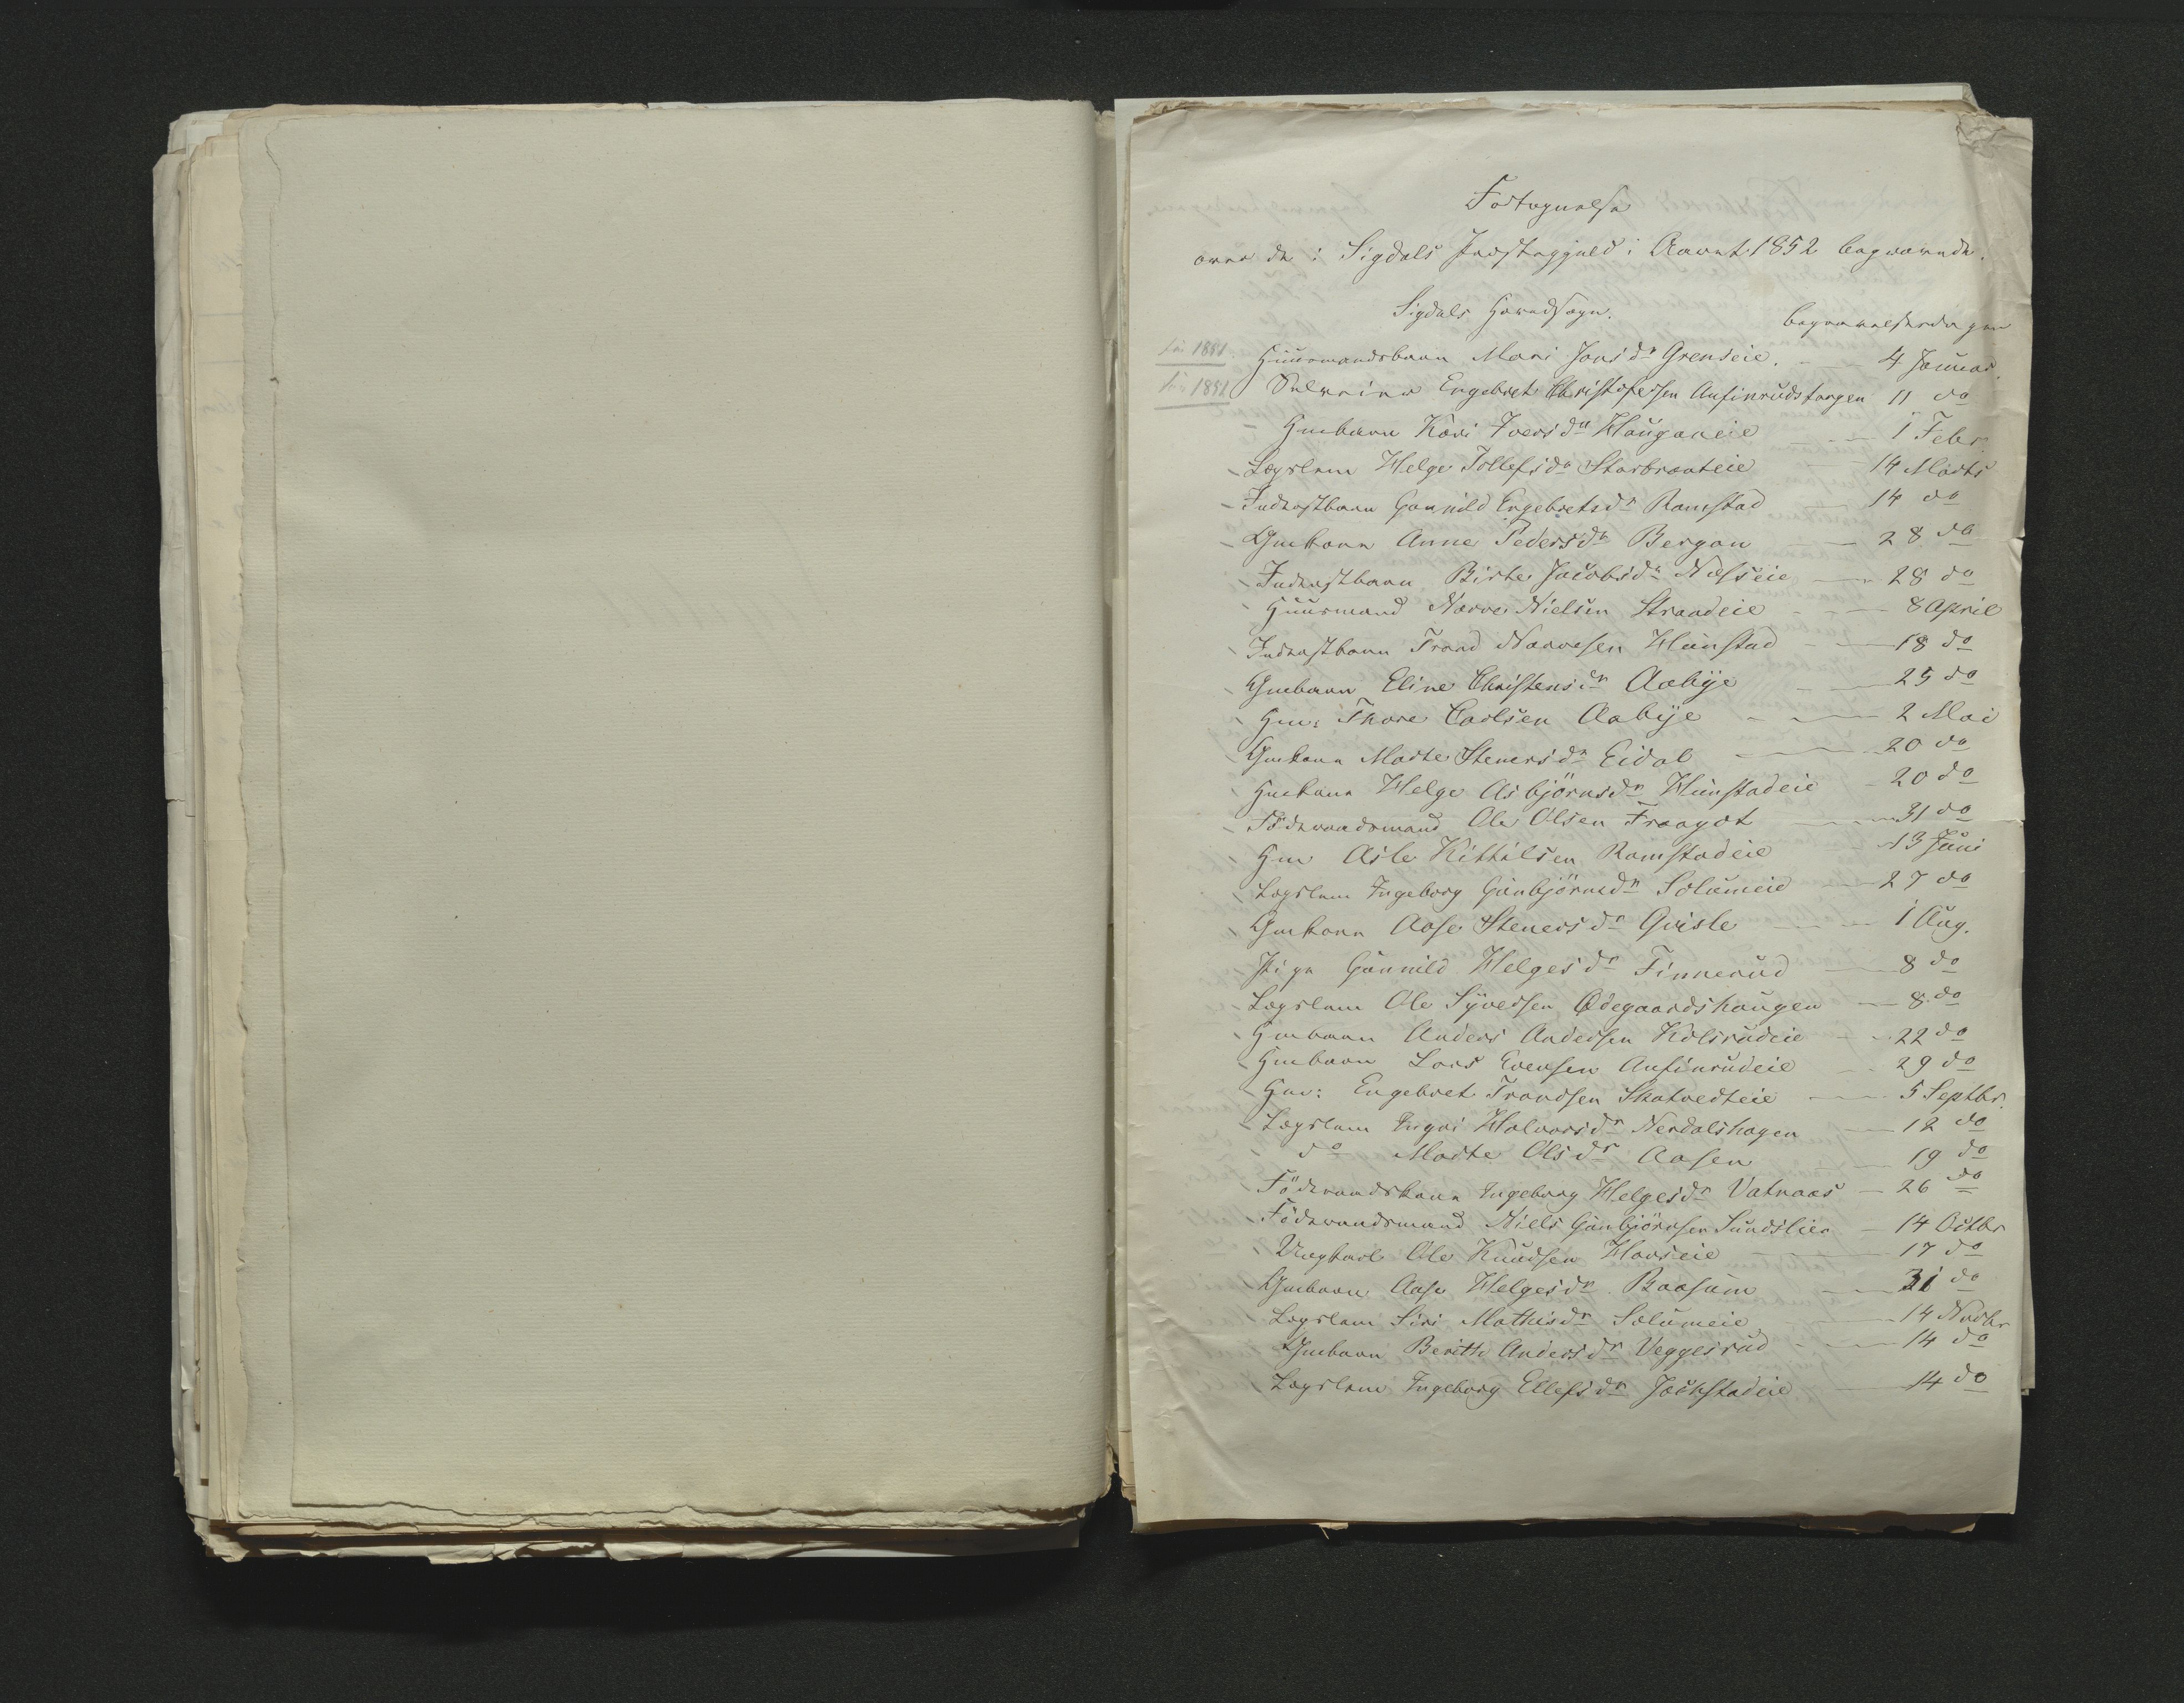 Fortegnelse
over de i Sigdals Præstegjeld i Aaret 1852 begravede.
Sigdals Hovedsogn. Begravelsesdagen
1851 Huusmandsbarn Mari Jonsdr Grenseie. 4 Januar.
1851 Selveier Engebret Christofersen Anfinrudstangen 11 do
Gmbarn Kari Iversdr Hauganeie 1 Febr.
Lægslem Helge Tollefsdr Storbraateie 14 Marts
Inderstbarn Gunnild Engebretsdr Ramstad 14 do
Gmkone Anne Pedersdr Bergan 28 do
Inderstbarn Birte Jacobsdr Næsseie 28 do
Huusmand Narve Nielsen Strandeie 8 April
Inderstbarn Trond Narvesen Hunstad 18 do
Gmbarn Eline Christensdr Aabye 25 do
Gm: Thore Carlsen Aabye 2 Mai
Gmkone Marte Stenersdr Eidal 20 do
Hmkone Helge Asbjörnsdr Hunstadeie 20 do
Föderaadsmand Ole Olsen Fraagot 31 do
Hm Asle Kittilsen Ramstadeie 13 Juni
Lægslem Ingeborg Gunbjörnsdr Solumeie 27 do
Gmkone Aase Stenersdr Gvisle 1 Aug.
Pige Gunnild Helgesdr Finnerud 8 do
Lægslem Ole Syversen Ødegaardshaugen 8 do
Hmbarn Anders Andersen Kolsrudeie 22 do
Hmbarn Lars Evensen Anfinrudeie 29 do
Hm: Engebret Trondsen Skatvedteie 5 Septbr.
Lægslem Ingri Halvorsdr Nerdalshagen 12 do
do Marte Olsdr Aasen 19 do
Föderaadskone Ingeborg Helgesdr Vatnaas 26 do
Föderaadsmand Niels Gunbjörnsen Sundslien 14 Octbr
Ungkarl Ole Knudsen Hovseie 17 do
Gmbarn Aase Helgesdr Baasum 31 do
Lægslem Siri Mathisdr Solumeie 14 Novbr
Gmbarn Beritte Andersdr Veggesrud 14 do
Lægslem Ingeborg Ellefsdr Jøckstadeie 14 do